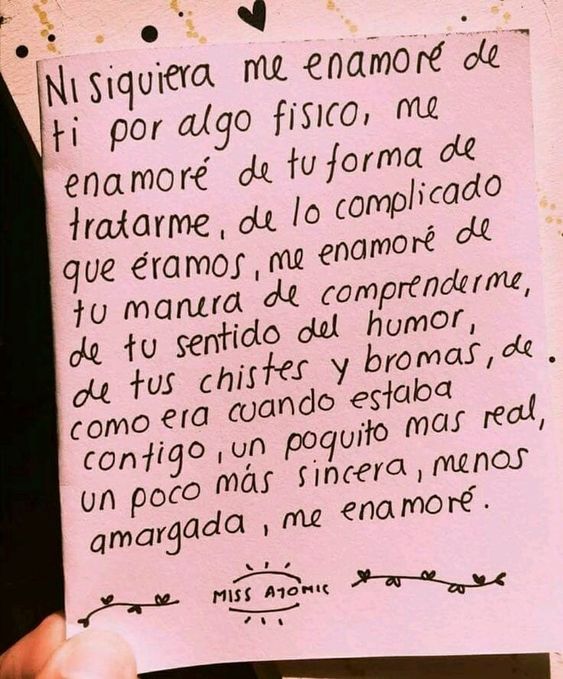 Ni siquiera me enamoré de
ti por algo fisico, me
enamoré de tu forma de
tratarme, de lo complicado
que éramos, me enamoré de
tu manera de comprenderme,
de tu sentido del humor,
de tus chistes y bromas, de
como era cuando estaba
contigo, un poquito mas real,
un poco más sincera, menos
amargada, me enamoré.
MISS ATOMIC